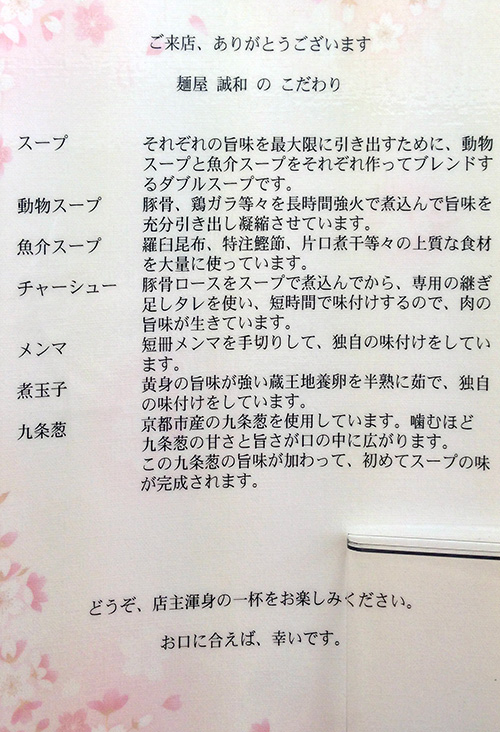 ご来店、ありがとうございます
麺屋 誠和 の こだわり
スープ それぞれの旨味を最大限に引き出すために、動物
スープと魚介スープをそれぞれ作ってブレンドす
るダブルスープです。
動物スープ 豚骨、鶏ガラ等々を長時間強火で煮込んで旨味を
充分引き出し凝縮させています。
魚介スープ 羅臼昆布、特注鰹節、片口煮干等々の上質な食材
を大量に使っています。
チャーシュー 豚骨ロースをスープで煮込んでから、専用の継ぎ
足しタレを使い、短時間で味付けするので、肉の
旨味が生きています。
メンマ 短冊メンマを手切りして、独自の味付けをしてい
ます。
煮玉子 黄身の旨味が強い蔵王地養卵を半熟に茹で、独自
の味付けをしています。
九条葱 京都市産の九条葱を使用しています。噛むほど
九条葱の甘さと旨さが口の中に広がります。
この九条葱の旨味が加わって、初めてスープの味
が完成されます。
どうぞ、店主渾身の一杯をお楽しみください。
お口に合えば、幸いです。